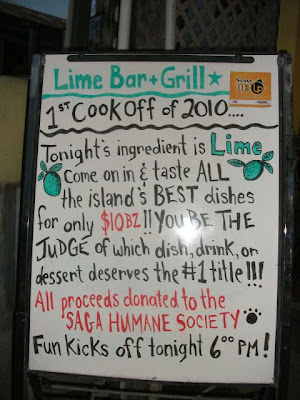 Lime Bar + Grill
TOP UP
1ST Cook Off of 2010....
Tonight's ingredient is Lime
Come on in & taste ALL
the island's BEST dishes
for only $10BZ!! YOU BE THE
JUDGE of which dish, drink, or
dessert deserves the #1 title!!!
All proceeds donated to the
SAGA HUMANE SOCIETY
Fun Kicks off tonight 6:00 PM!